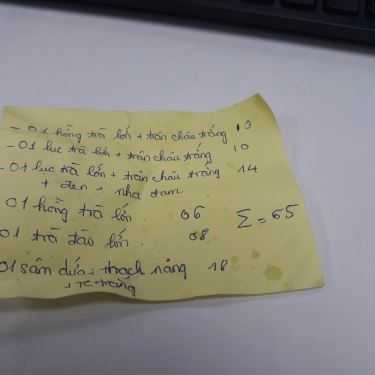 - 01 hồng trà lớn + trân châu trắng 10
- 01 lục trà lớn + trân châu trắng 10
- 01 lục trà lớn + trân châu trắng 14
+ đen + nha đam
01 hồng trà lớn 06 Σ = 65
01 trà đào lớn 08
01 sâm dứa + thạch nắng 18
+ tc trắng